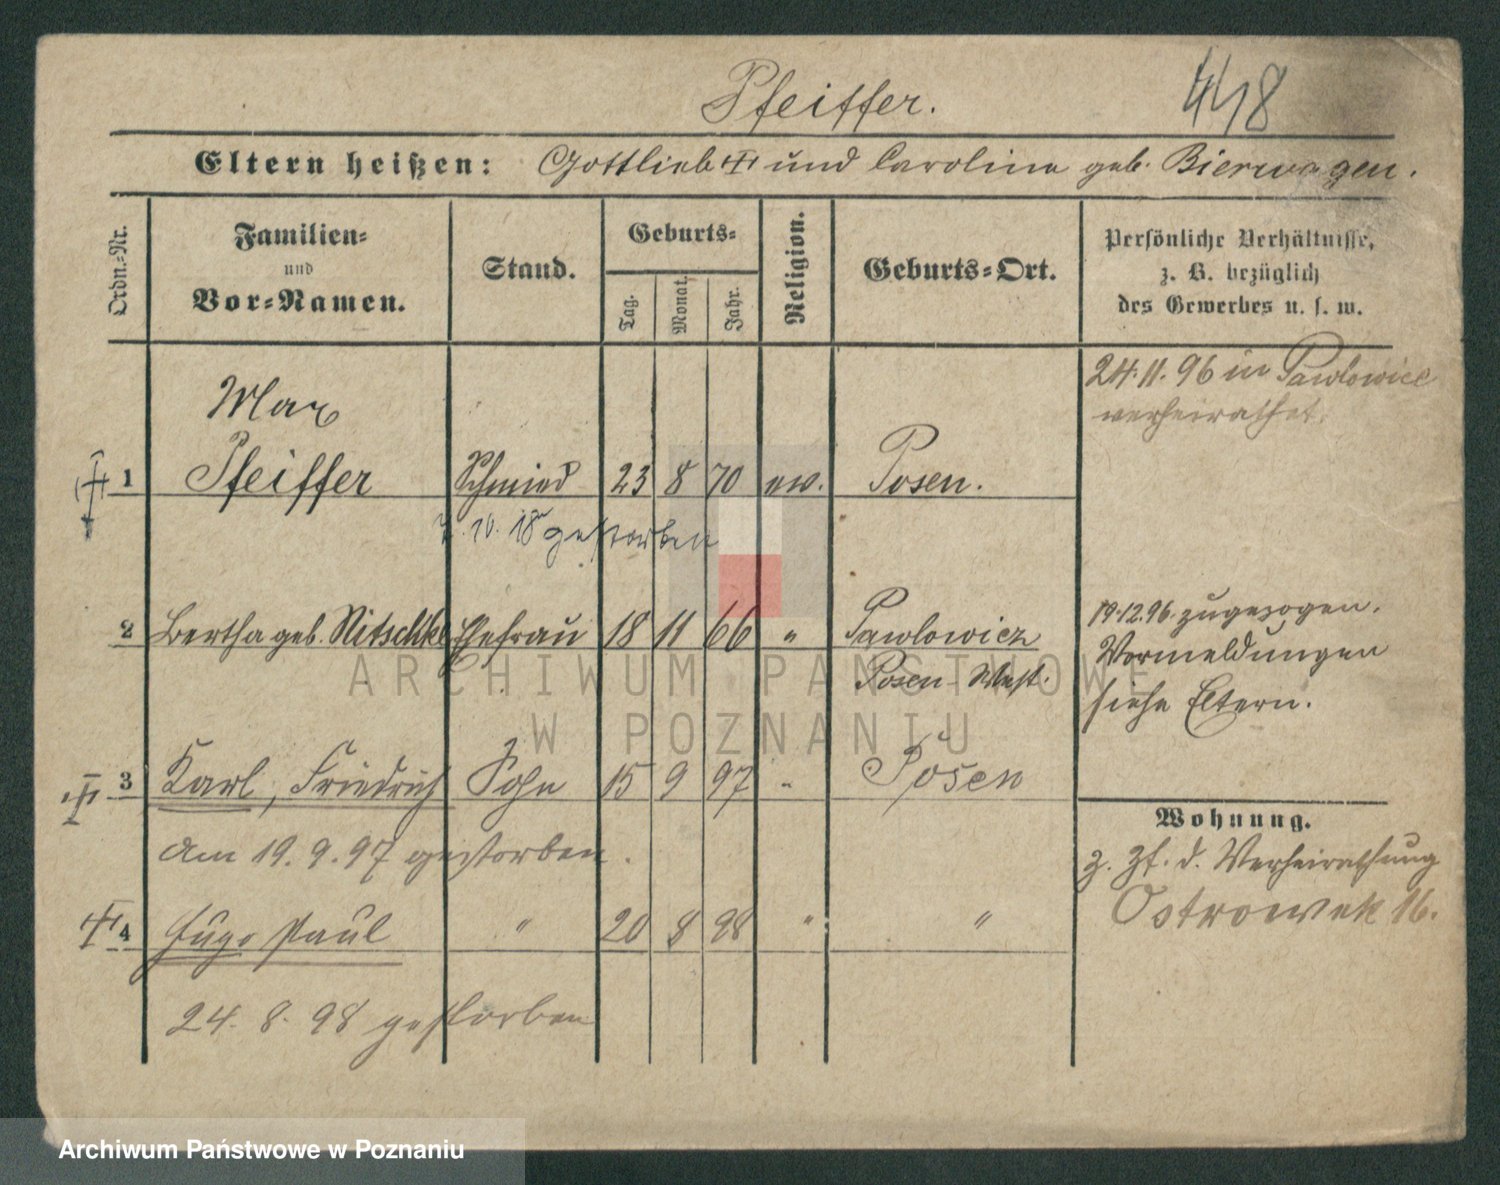 Pfeiffer. 448
Eltern heißen: Gottlieb und Carolina geb. Bierwagen.
Ordn.-Nr.
Familien-
und
Vor-Namen.
Stand.
Geburts-
Tag.
Monat.
Jahr.
Religion.
Geburts-Ort.
Persönliche Verhältnisse,
z. B. bezüglich
des Gewerbes u. s. w.
24.11.96 in Pawlowice
verheirathet.
Max
1 Pfeiffer Schmied 23 8 70 ev. Posen.
10. 18 gestorben
2 Bertha geb. Nitschke Ehefrau 18 11 66 " Pawlowicz
Posen West.
19.12.96 zugezogen.
Vormeldungen
siehe Eltern.
3 Karl, Friedrich Sohn 15 9 97 " Posen
am 19.9.97 gestorben.
Wohnung.
z. Zt. d. Verheirathung
Ostrowek 16.
4 Hugo Paul " 20 8 98 " "
24.8.98 gestorben
ARCHIWUM PAŃSTWOWE
W POZNANIU
Archiwum Państwowe w Poznaniu